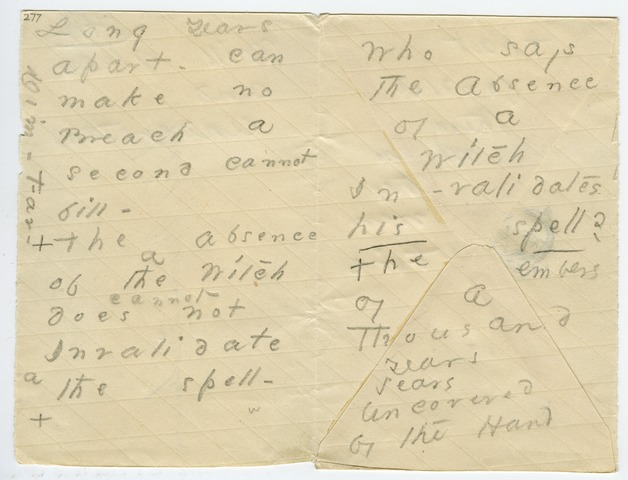 277
Long years
apart - can
make no
Breach a
second cannot
fill -
+ the a absence
a
of the Witch
cannot
does not
Invalidate
a the spell -
+
who says
The Absence
of a
Witch
In - validates
his spell?
the embers
of a
Thousand
years
years
Uncovered
by the Hand